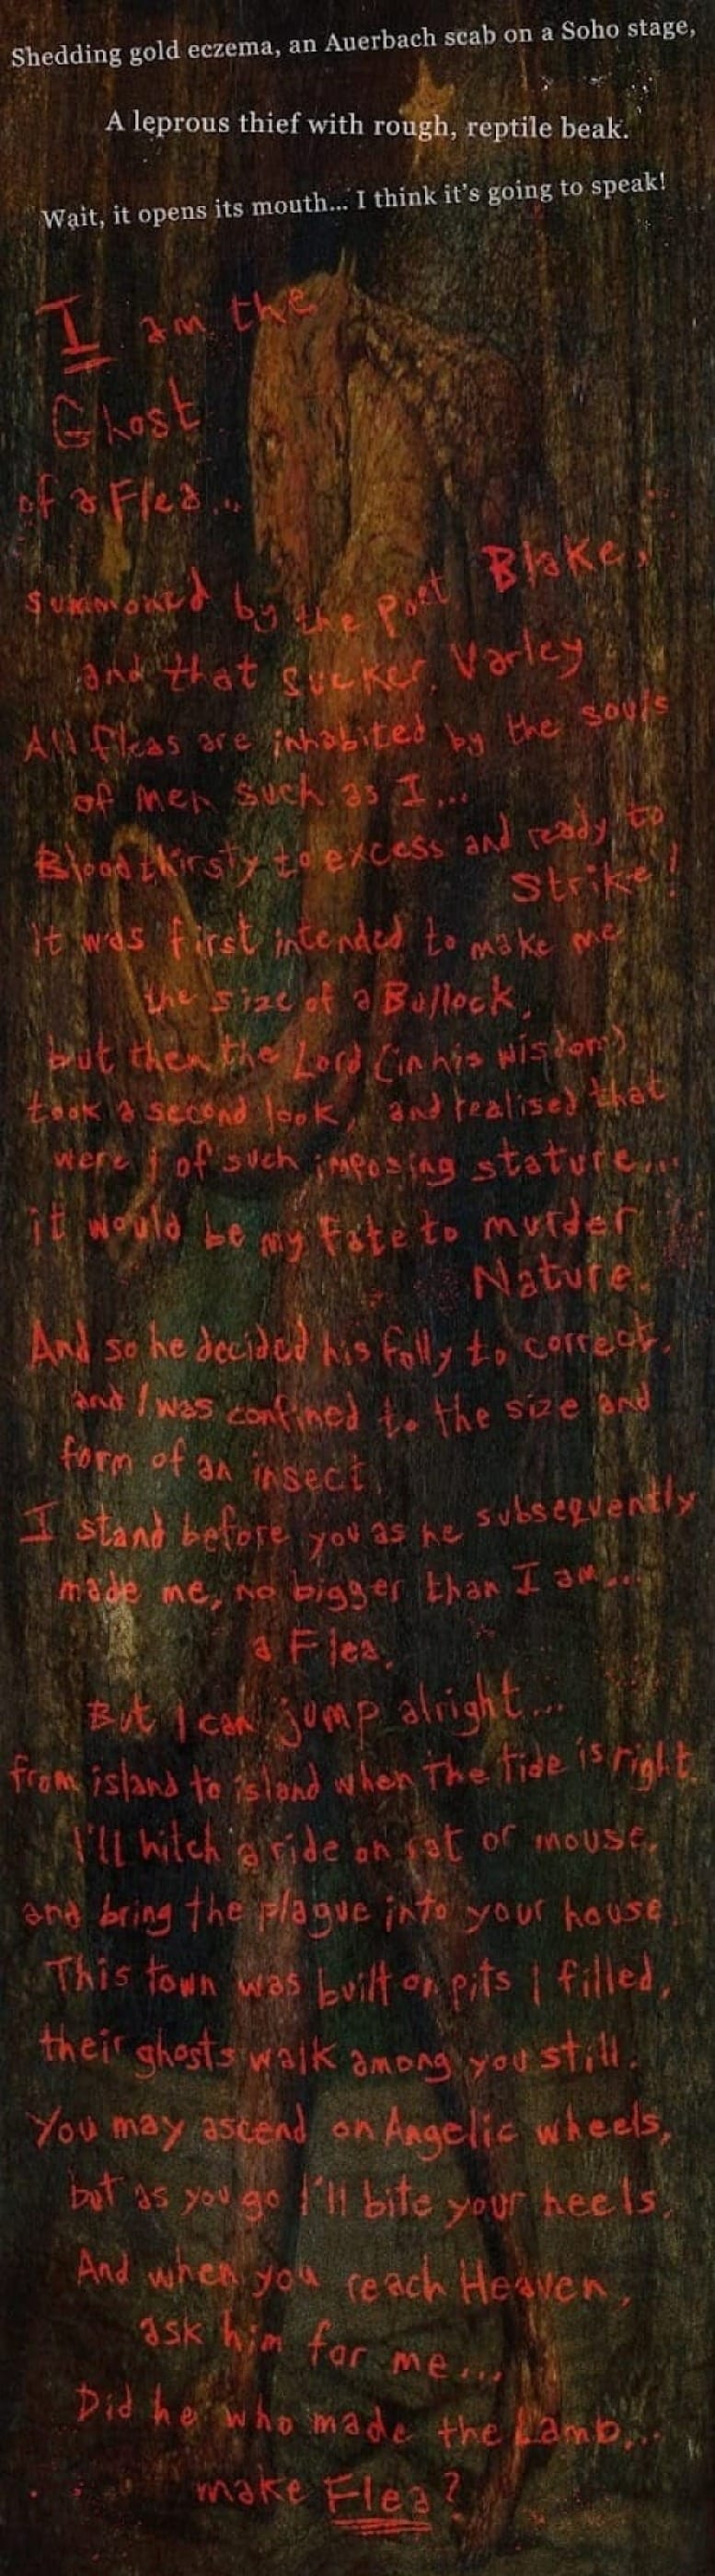 Shedding gold eczema, an Auerbach scab on a Soho stage,
A leprous thief with rough, reptile beak.
Wait, it opens its mouth... I think it's going to speak!
I am the
Ghost
of a Flea...
summoned by the Poet Blake,
and that sucker, Varley
All fleas are inhabited by the souls
of men such as I...
Bloodthirsty to excess and ready to
strike!
It was first intended to make me
the size of a Bullock,
but then the Lord (in his wisdom)
took a second look, and realised that
were I of such imposing stature...
it would be my fate to murder
Nature.
And so he decided his folly to correct,
and I was confined to the size and
form of an insect.
I stand before you as he subsequently
made me, no bigger than I am...
a Flea.
But I can jump alright...
from island to island when the tide is right.
I'll hitch a ride on rat or mouse,
and bring the plague into your house.
This town was built on pits I filled,
their ghosts walk among you still.
You may ascend on Angelic wheels,
but as you go I'll bite your heels.
And when you reach Heaven,
ask him for me...
Did he who made the Lamb...
make Flea?